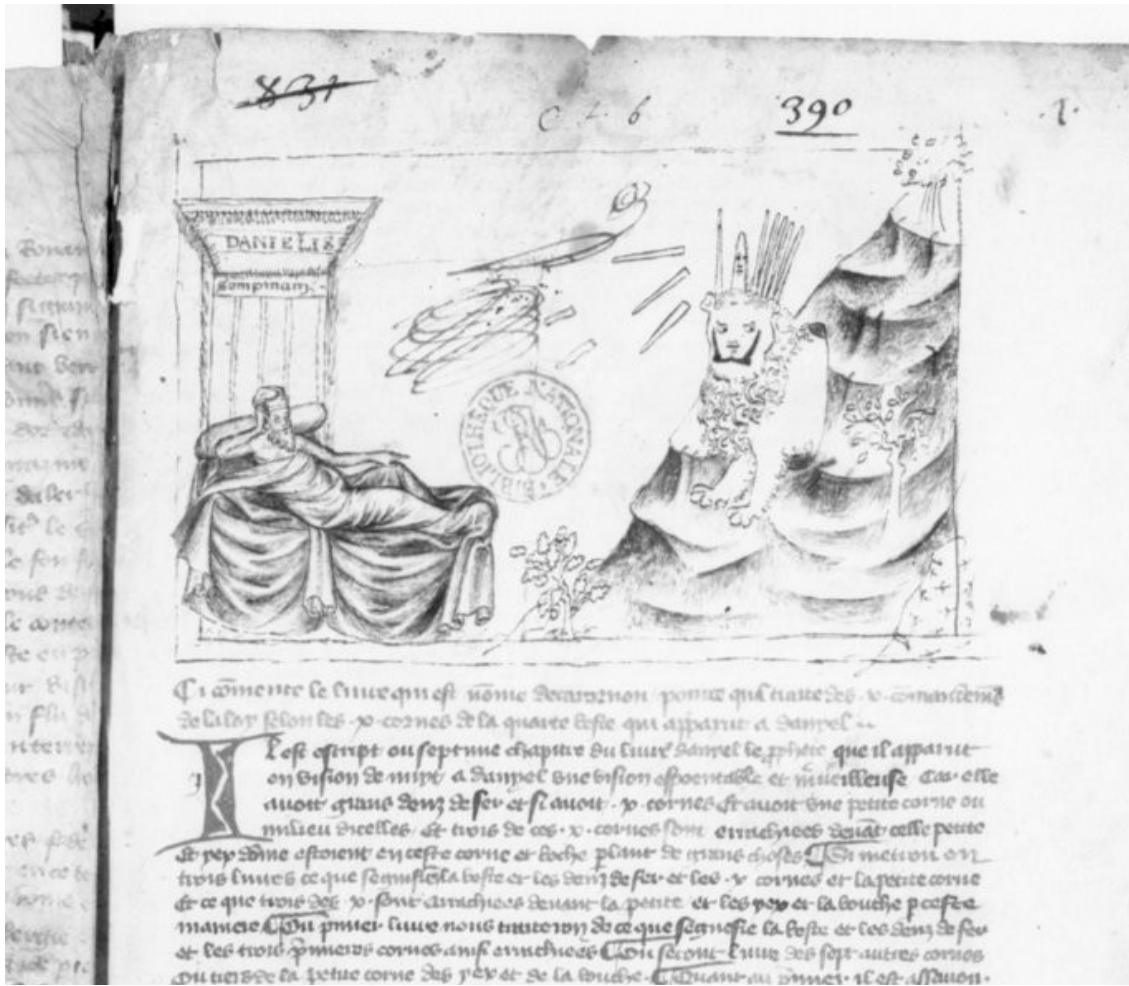 831
C. L. 6
390
1.
DANIELIS
sompnium
BIBLIOTHÈQUE NATIONALE
Ci comente le livre qui est nome decacernon pource quil traite des .x. comandemens
de la loy selon les .x. cornes de la quarte beste qui apparut a danyel
IL est escript ou septime chapitre du livre danyel le pphete que il apparut
en vision de nuyt a danyel une vision espoentable et mveilleuse Car elle
avoit grans denz de fer et si avoit .x. cornes Et avoit une petite corne ou
milieu dicelles Et trois de ces .x. cornes sont errachiees devant celle petite
Et yex dome estoient en ceste corne et boche plant de grans choses Si metron en
trois livres ce que segnifie la beste et les denz de fer et les .x. cornes et la petite corne
Et ce que trois des .x. sont errachiees devant la petite et les yex et la bouche p ceste
maniere Ou pmier livre nous traiteron de ce que segnefie la beste et les denz de fer
et les trois pmieres cornes ansi errachiees Ou secont livre des sept autres cornes
Ou tiers de la petite corne des yex et de la bouche Quant au pmier il est assavoir